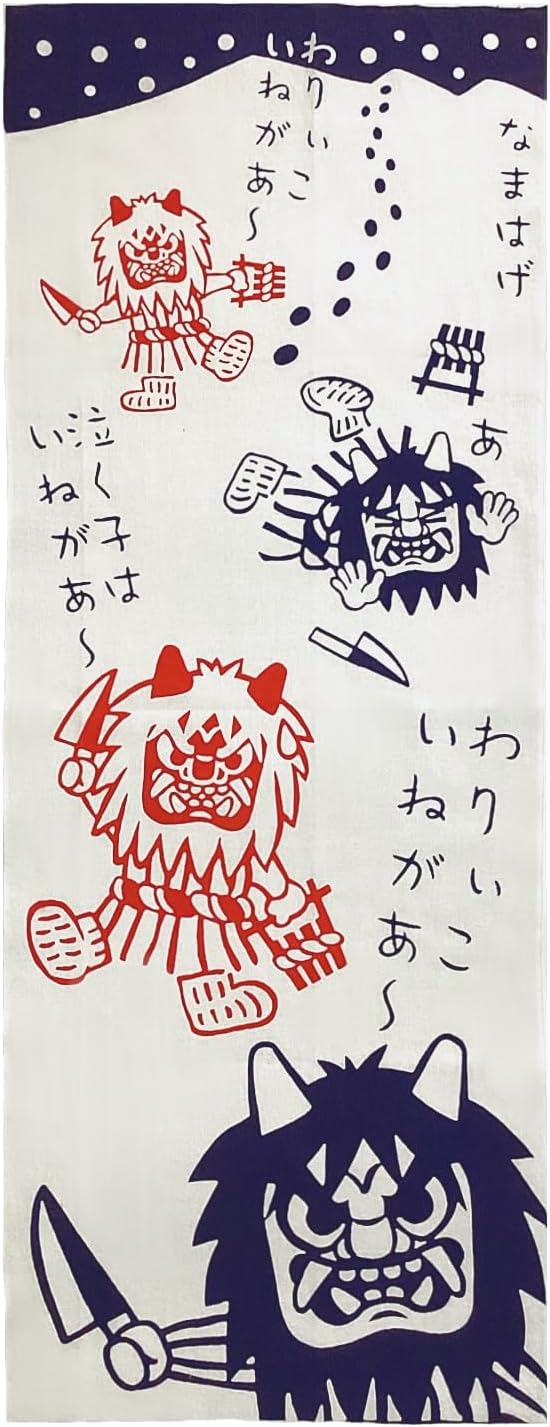 なまはげ
わりぃこ
いねがあ～
あ
泣く子は
いねがあ～
わりぃこ
いねがあ～